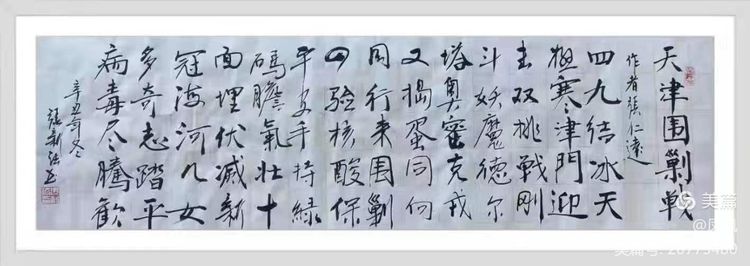 天津围剿戰
作者張仁達
四九结冰天
极寒津門迎
主双挑戰刚
斗妖魔德尔
塔奥蜜克戎
又搗蛋同向
同行来围剿
四验核酸保
平安手持緑
碼膽氣壮十
面埋伏滅新
冠海河儿女
多奇志踏平
病毒尽騰歡
辛丑年冬
張新
美篇